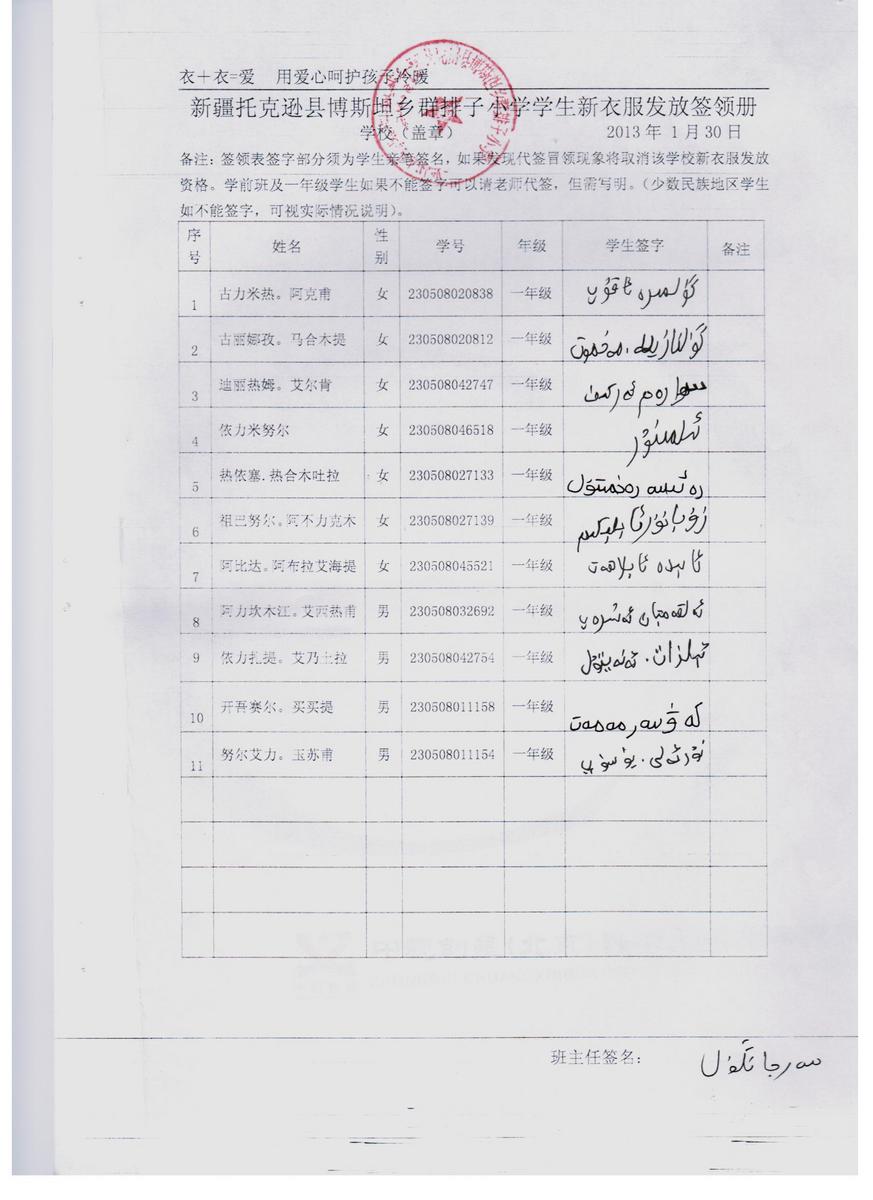 衣＋衣=爱　用爱心呵护孩子冷暖
新疆托克逊县博斯坦乡群排子小学学生新衣服发放签领册
学校（盖章）　2013 年 1 月 30 日
备注：签领表签字部分须为学生亲笔签名，如果发现代签冒领现象将取消该学校新衣服发放
资格。学前班及一年级学生如果不能签字可以请老师代签，但需写明。（少数民族地区学生
如不能签字，可视实际情况说明）。
序号 姓名 性别 学号 年级 学生签字 备注
1 古力米热。阿克甫 女 230508020838 一年级 گۈلمىرە ئاقۇپ
2 古丽娜孜。马合木提 女 230508020812 一年级
3 迪丽热姆。艾尔肯 女 230508042747 一年级
4 依力米努尔 女 230508046518 一年级 ئىلمىنۇر
5 热依塞.热合木吐拉 女 230508027133 一年级
6 祖巴努尔。阿不力克木 女 230508027139 一年级
7 阿比达。阿布拉艾海提 女 230508045521 一年级
8 阿力坎木江。艾西热甫 男 230508032692 一年级
9 依力扎提。艾乃土拉 男 230508042754 一年级
10 开吾赛尔。买买提 男 230508011158 一年级 كەۋسەر مەمەت
11 努尔艾力。玉苏甫 男 230508011154 一年级 نۇرئەلى. يۈسۈپ
班主任签名：